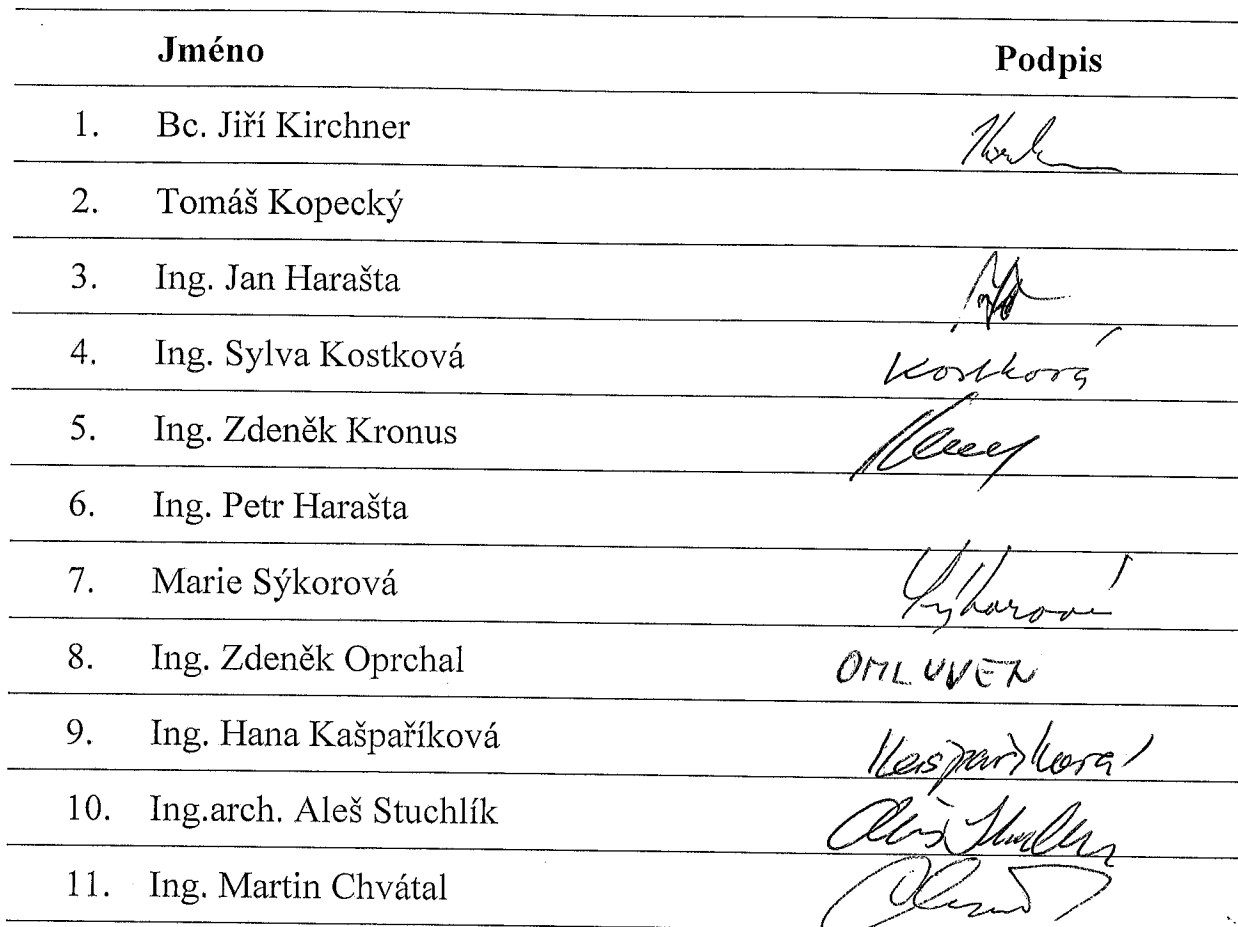 Jméno Podpis
1. Bc. Jiří Kirchner
2. Tomáš Kopecký
3. Ing. Jan Harašta
4. Ing. Sylva Kostková Kostková
5. Ing. Zdeněk Kronus
6. Ing. Petr Harašta
7. Marie Sýkorová Sýkorová
8. Ing. Zdeněk Oprchal OMLUVEN
9. Ing. Hana Kašpaříková Kašpaříková
10. Ing.arch. Aleš Stuchlík
11. Ing. Martin Chvátal